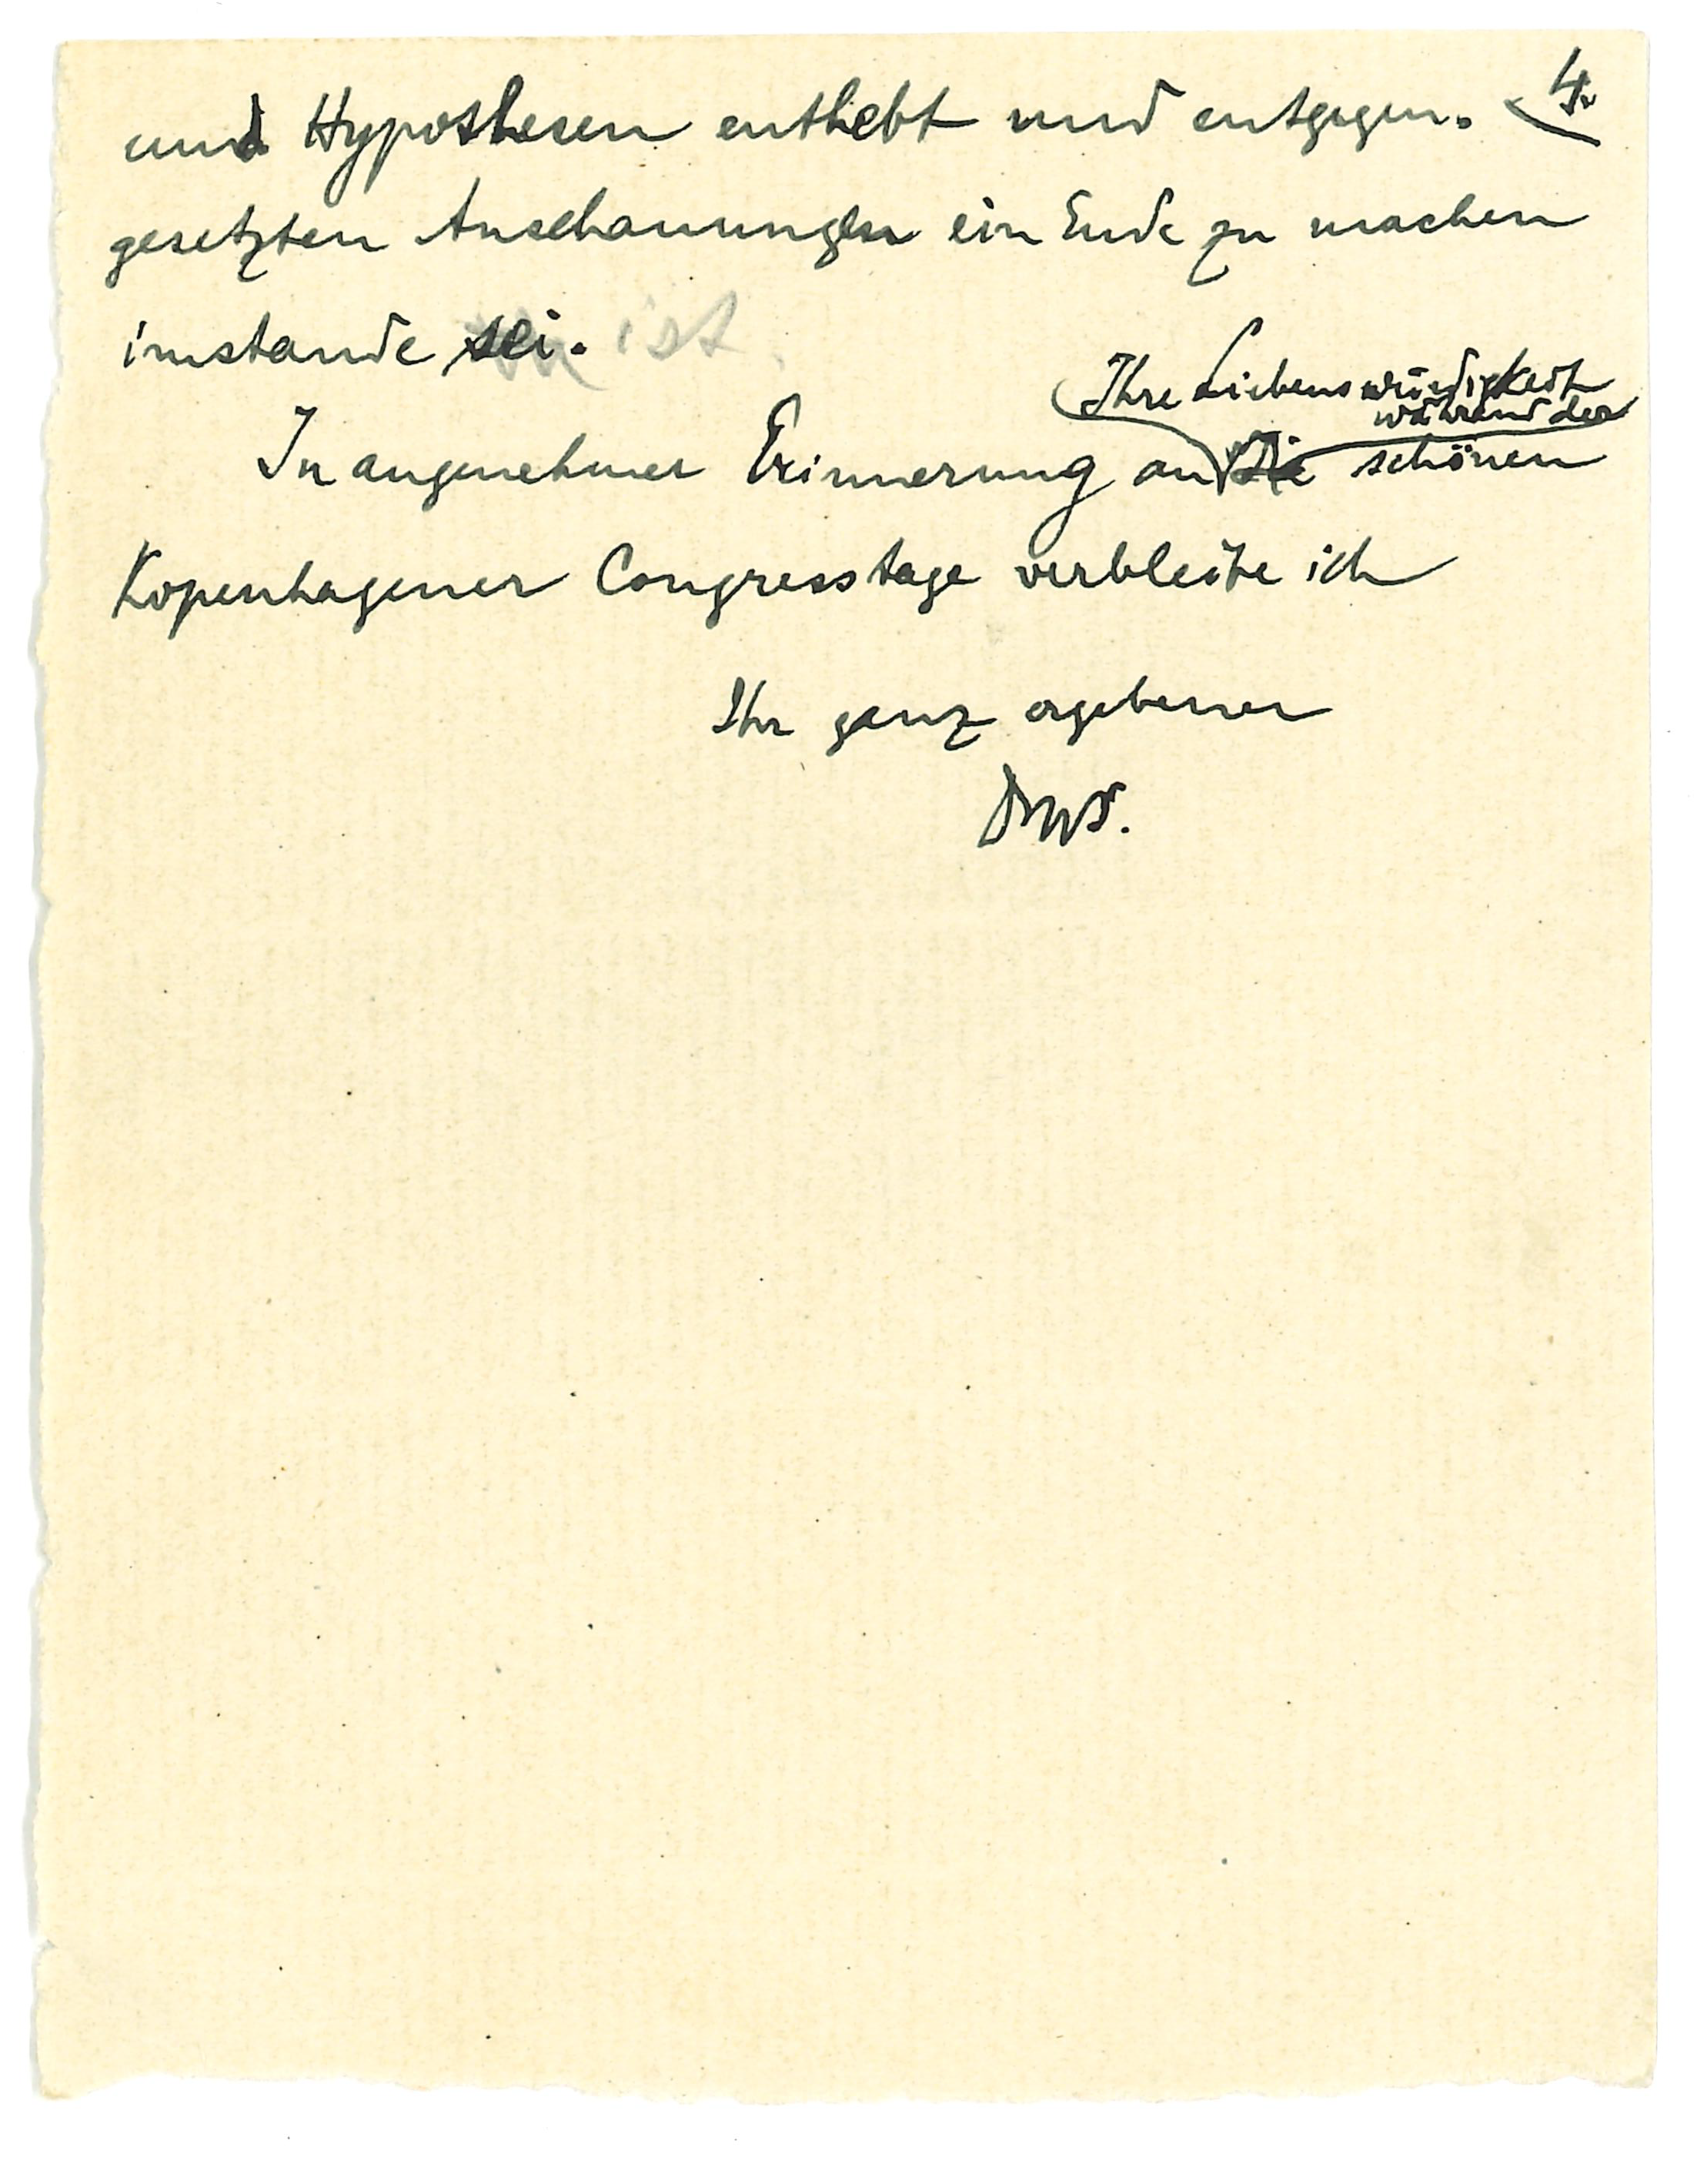 4.
und Hypothesen enthebt und entgegen-
gesetzten Anschauungen ein Ende zu machen
imstande sei. ist.
Ihre Liebenswürdigkeit
während der
In angenehmer Erinnerung an die schönen
Kopenhagener Congresstage verbleibe ich
Ihr ganz ergebener